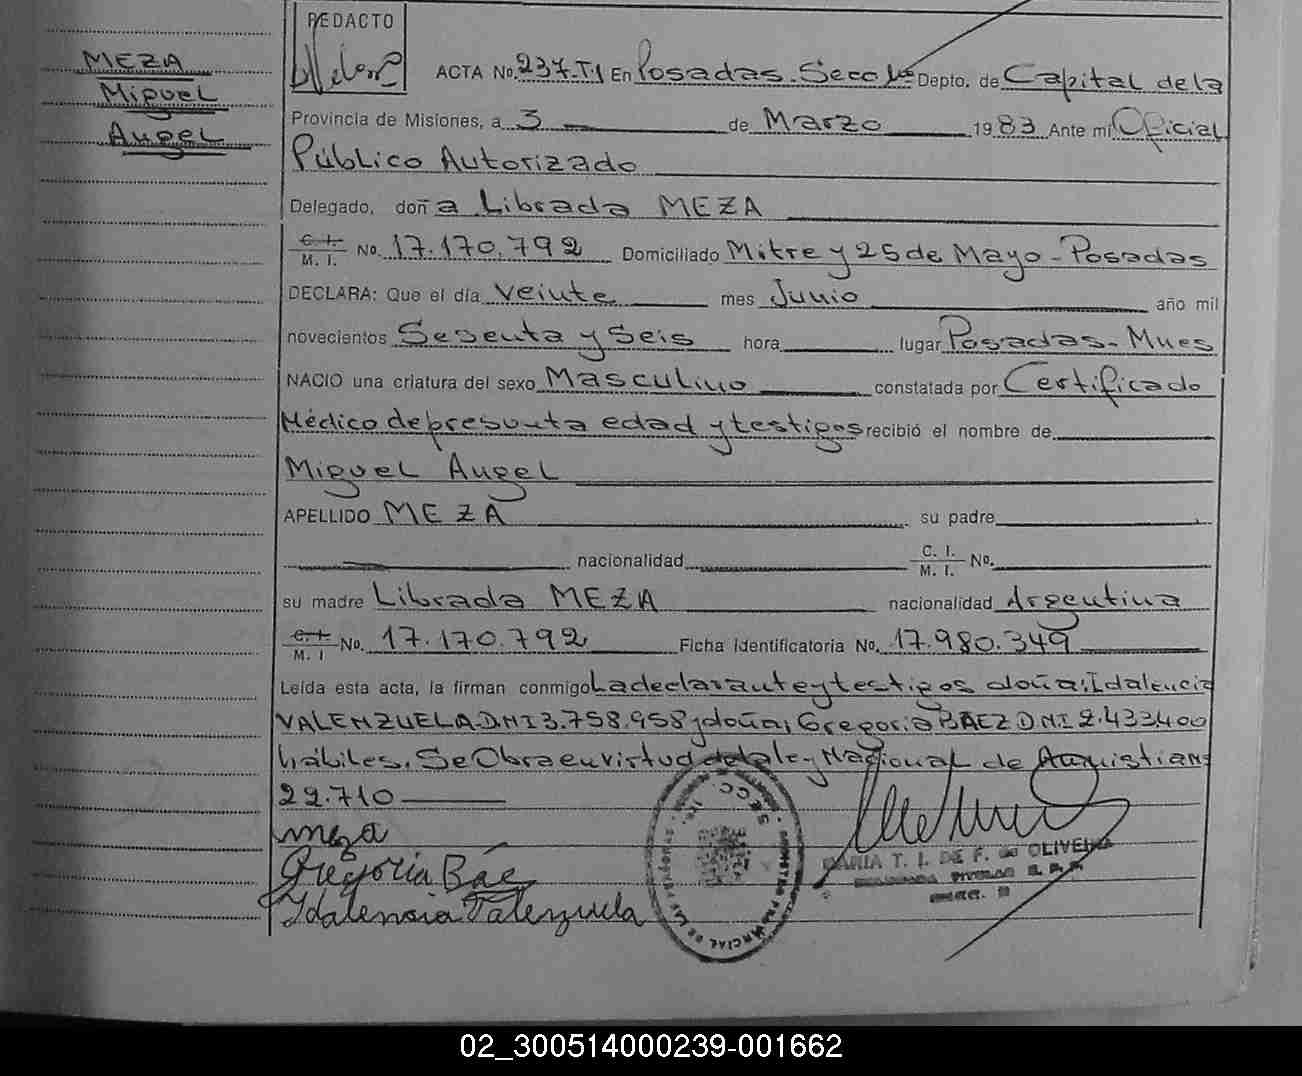 MEZA
Miguel
Angel
REDACTO
ACTA No. 237-T1 En Posadas. Secc 1ª Depto. de Capital de la
Provincia de Misiones, a 3 de Marzo 1983 Ante mi Oficial
Público Autorizado
Delegado, doña Librada MEZA
C. I. M. I. No. 17.170.792 Domiciliado Mitre y 25 de Mayo - Posadas
DECLARA: Que el día veinte mes Junio año mil
novecientos Sesenta y Seis hora lugar Posadas - Mnes
NACIO una criatura del sexo Masculino constatada por Certificado
Médico de presunta edad y testigos recibió el nombre de
Miguel Angel
APELLIDO MEZA su padre
nacionalidad C. I. M. I. No.
su madre Librada MEZA nacionalidad Argentina
C. I. M. I No. 17.170.792 Ficha Identificatoria No. 17.980.349
Leída esta acta, la firman conmigo La declarante y testigos doña: Idalencia
VALENZUELA DNI 3.758.958 y doña, Gregoria BAEZ DNI 2.433.400
hábiles. Se Obra en virtud de la ley Nacional de
22.710
meza
Gregoria Báe
Idalensia Valenzuela
MARIA T. I. DE F. de OLIVEIRA
02_300514000239-001662